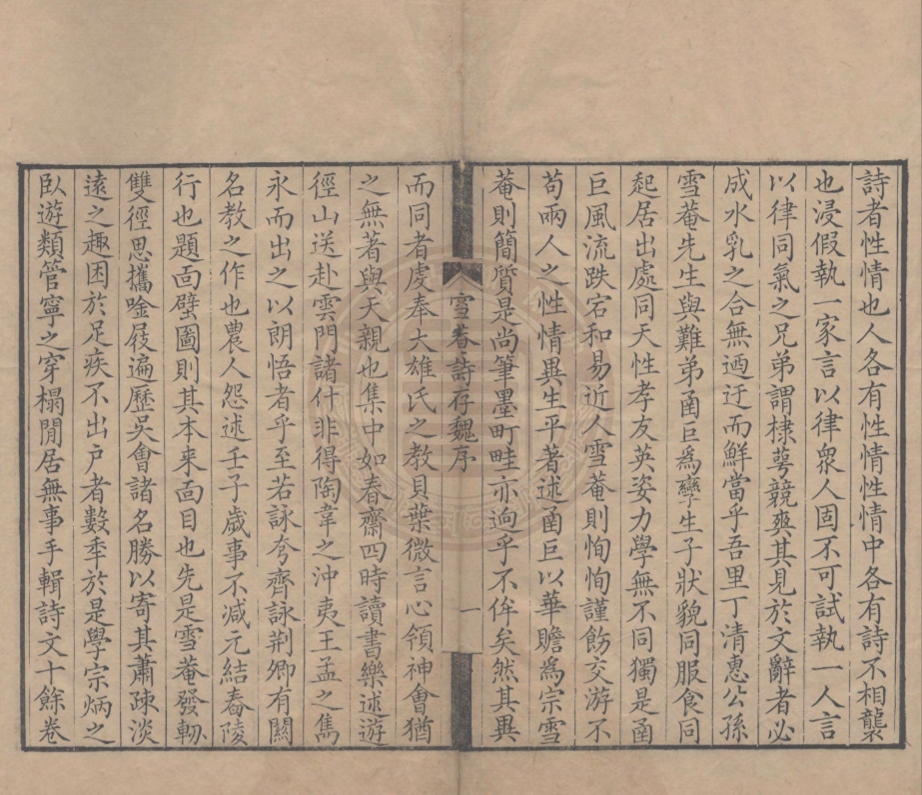 詩者性情也人各有性情性情中各有詩不相襲
也浸假執一家言以律衆人固不可試執一人言
以律同氣之兄弟謂棣萼競爽其見於文辭者必
成水乳之合無迺迂而鮮當乎吾里丁清惠公孫
雪菴先生與難弟菡巨爲孿生子狀貌同服食同
起居出處同天性孝友英姿力學無不同獨是菡
巨風流跌宕和易近人雪菴則恂恂謹飭交游不
苟兩人之性情異生平著述菡巨以華贍爲宗雪
菴則簡質是尚筆墨町畦亦逈乎不侔矣然其異
雪菴詩存魏序
一
而同者虔奉大雄氏之教貝葉微言心領神會猶
之無著與天親也集中如春齋四時讀書樂述遊
徑山送赴雲門諸什非得陶韋之沖夷王孟之雋
永而出之以朗悟者乎至若詠夸齊詠荆卿有關
名教之作也農人怨述壬子歲事不減元結舂陵
行也題靣壁圖則其本来靣目也先是雪菴發軔
雙徑思攜唫屐遍歷吳會諸名勝以寄其蕭疎淡
遠之趣困於足疾不出户者數秊於是學宗炳之
臥遊類管寧之穿榻閒居無事手輯詩文十餘卷